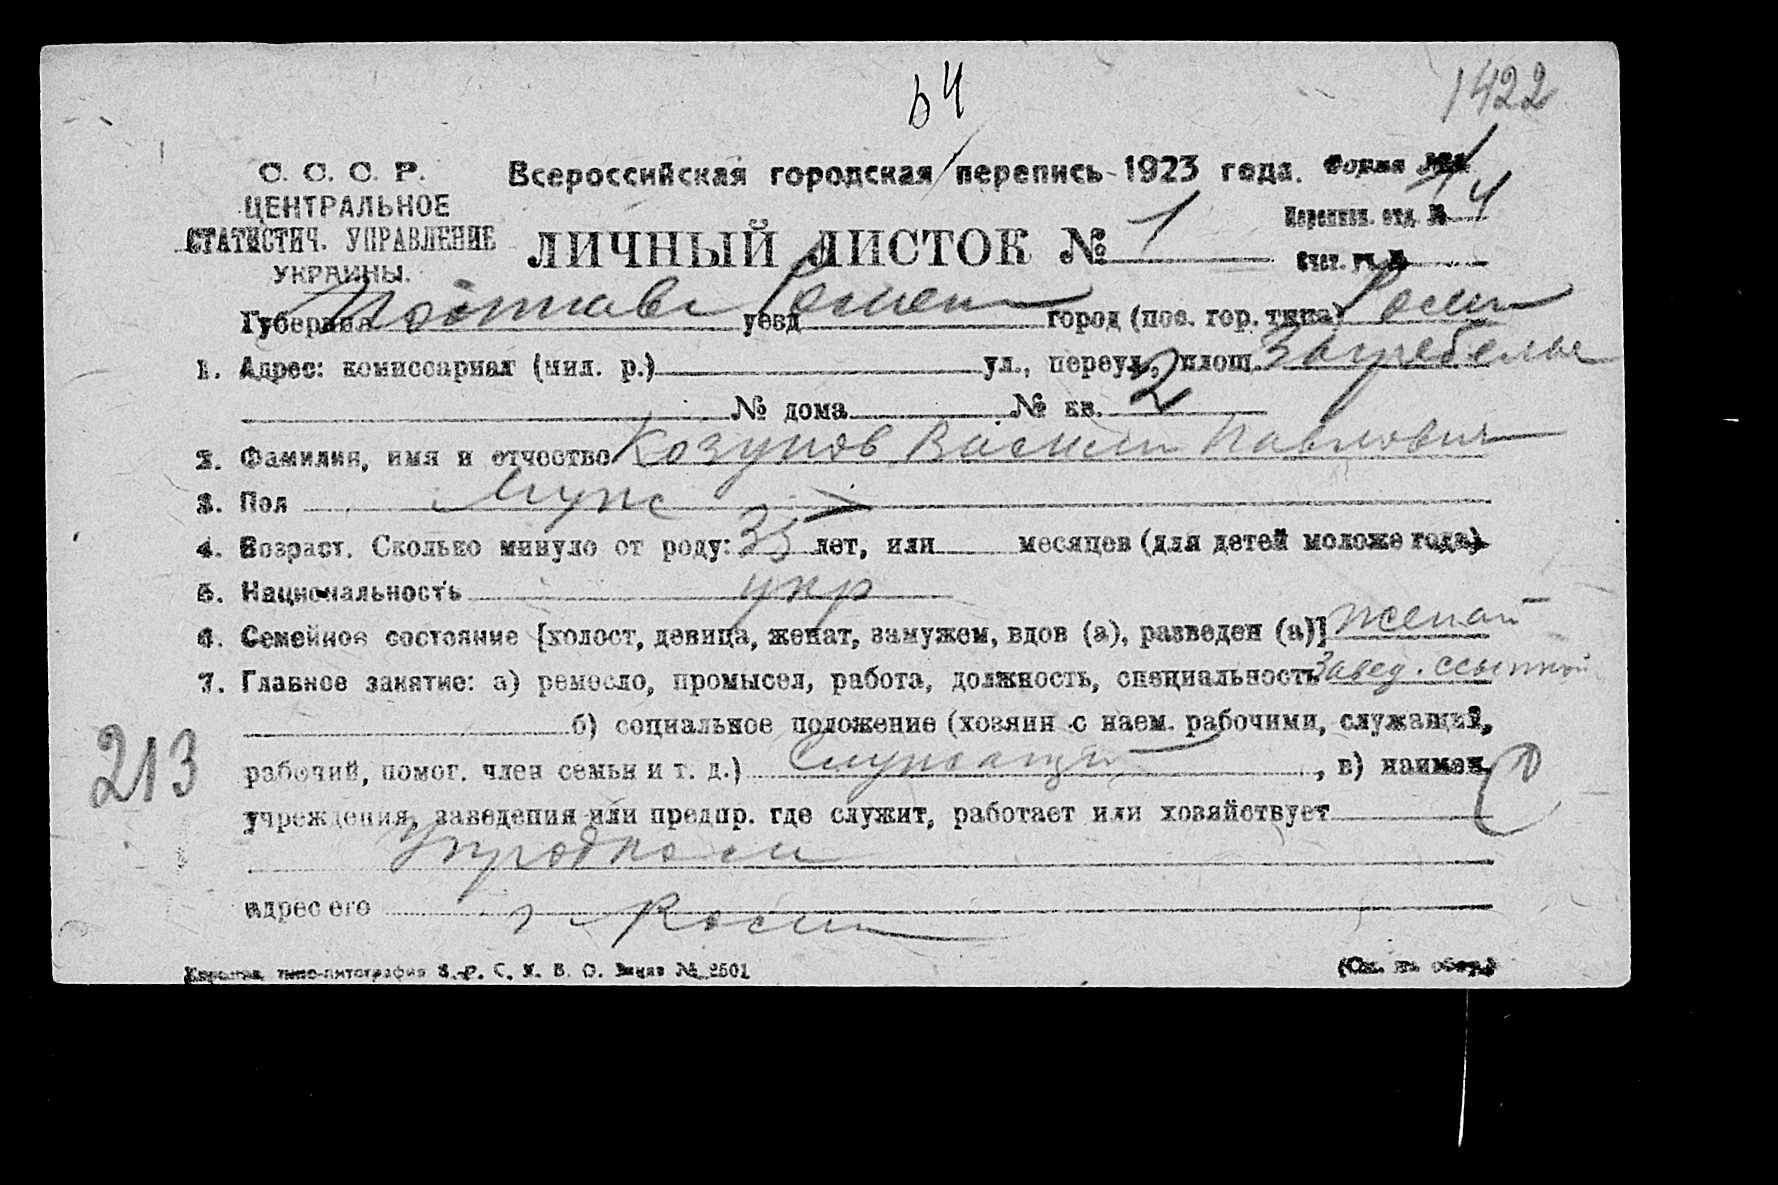 64
1422
С. С. С. Р.
ЦЕНТРАЛЬНОЕ
СТАТИСТИЧ. УПРАВЛЕНИЕ
УКРАИНЫ.
Всероссийская городская перепись 1923 года.
Форма №
Переписн. отд. № 4
ЛИЧНЫЙ ЛИСТОК № 1
Счет. уч. №
Губерния Полтавс уезд Ромен город (пос. гор. типа) Ромн
1. Адрес: комиссариат (мил. р.) ул., переул., площ. Загребелье
№ дома № кв. 2
2. Фамилия, имя и отчество Козупов Василий Павлович
3. Пол Муж
4. Возраст. Сколько минуло от роду: 35 лет, или месяцев (для детей моложе года).
5. Национальность укр
6. Семейное состояние [холост, девица, женат, замужем, вдов (а), разведен (а)] женат
7. Главное занятие: а) ремесло, промысел, работа, должность, специальность Завед. ссыпной
б) социальное положение (хозяин с наем. рабочими, служащий,
213
рабочий, помог. член семьи и т. д.) Служащий, в) наимен.
учреждения, заведения или предпр. где служит, работает или хозяйствует
адрес его г Ромн
типо-литография Заказ № 2501
(См. на обор.)